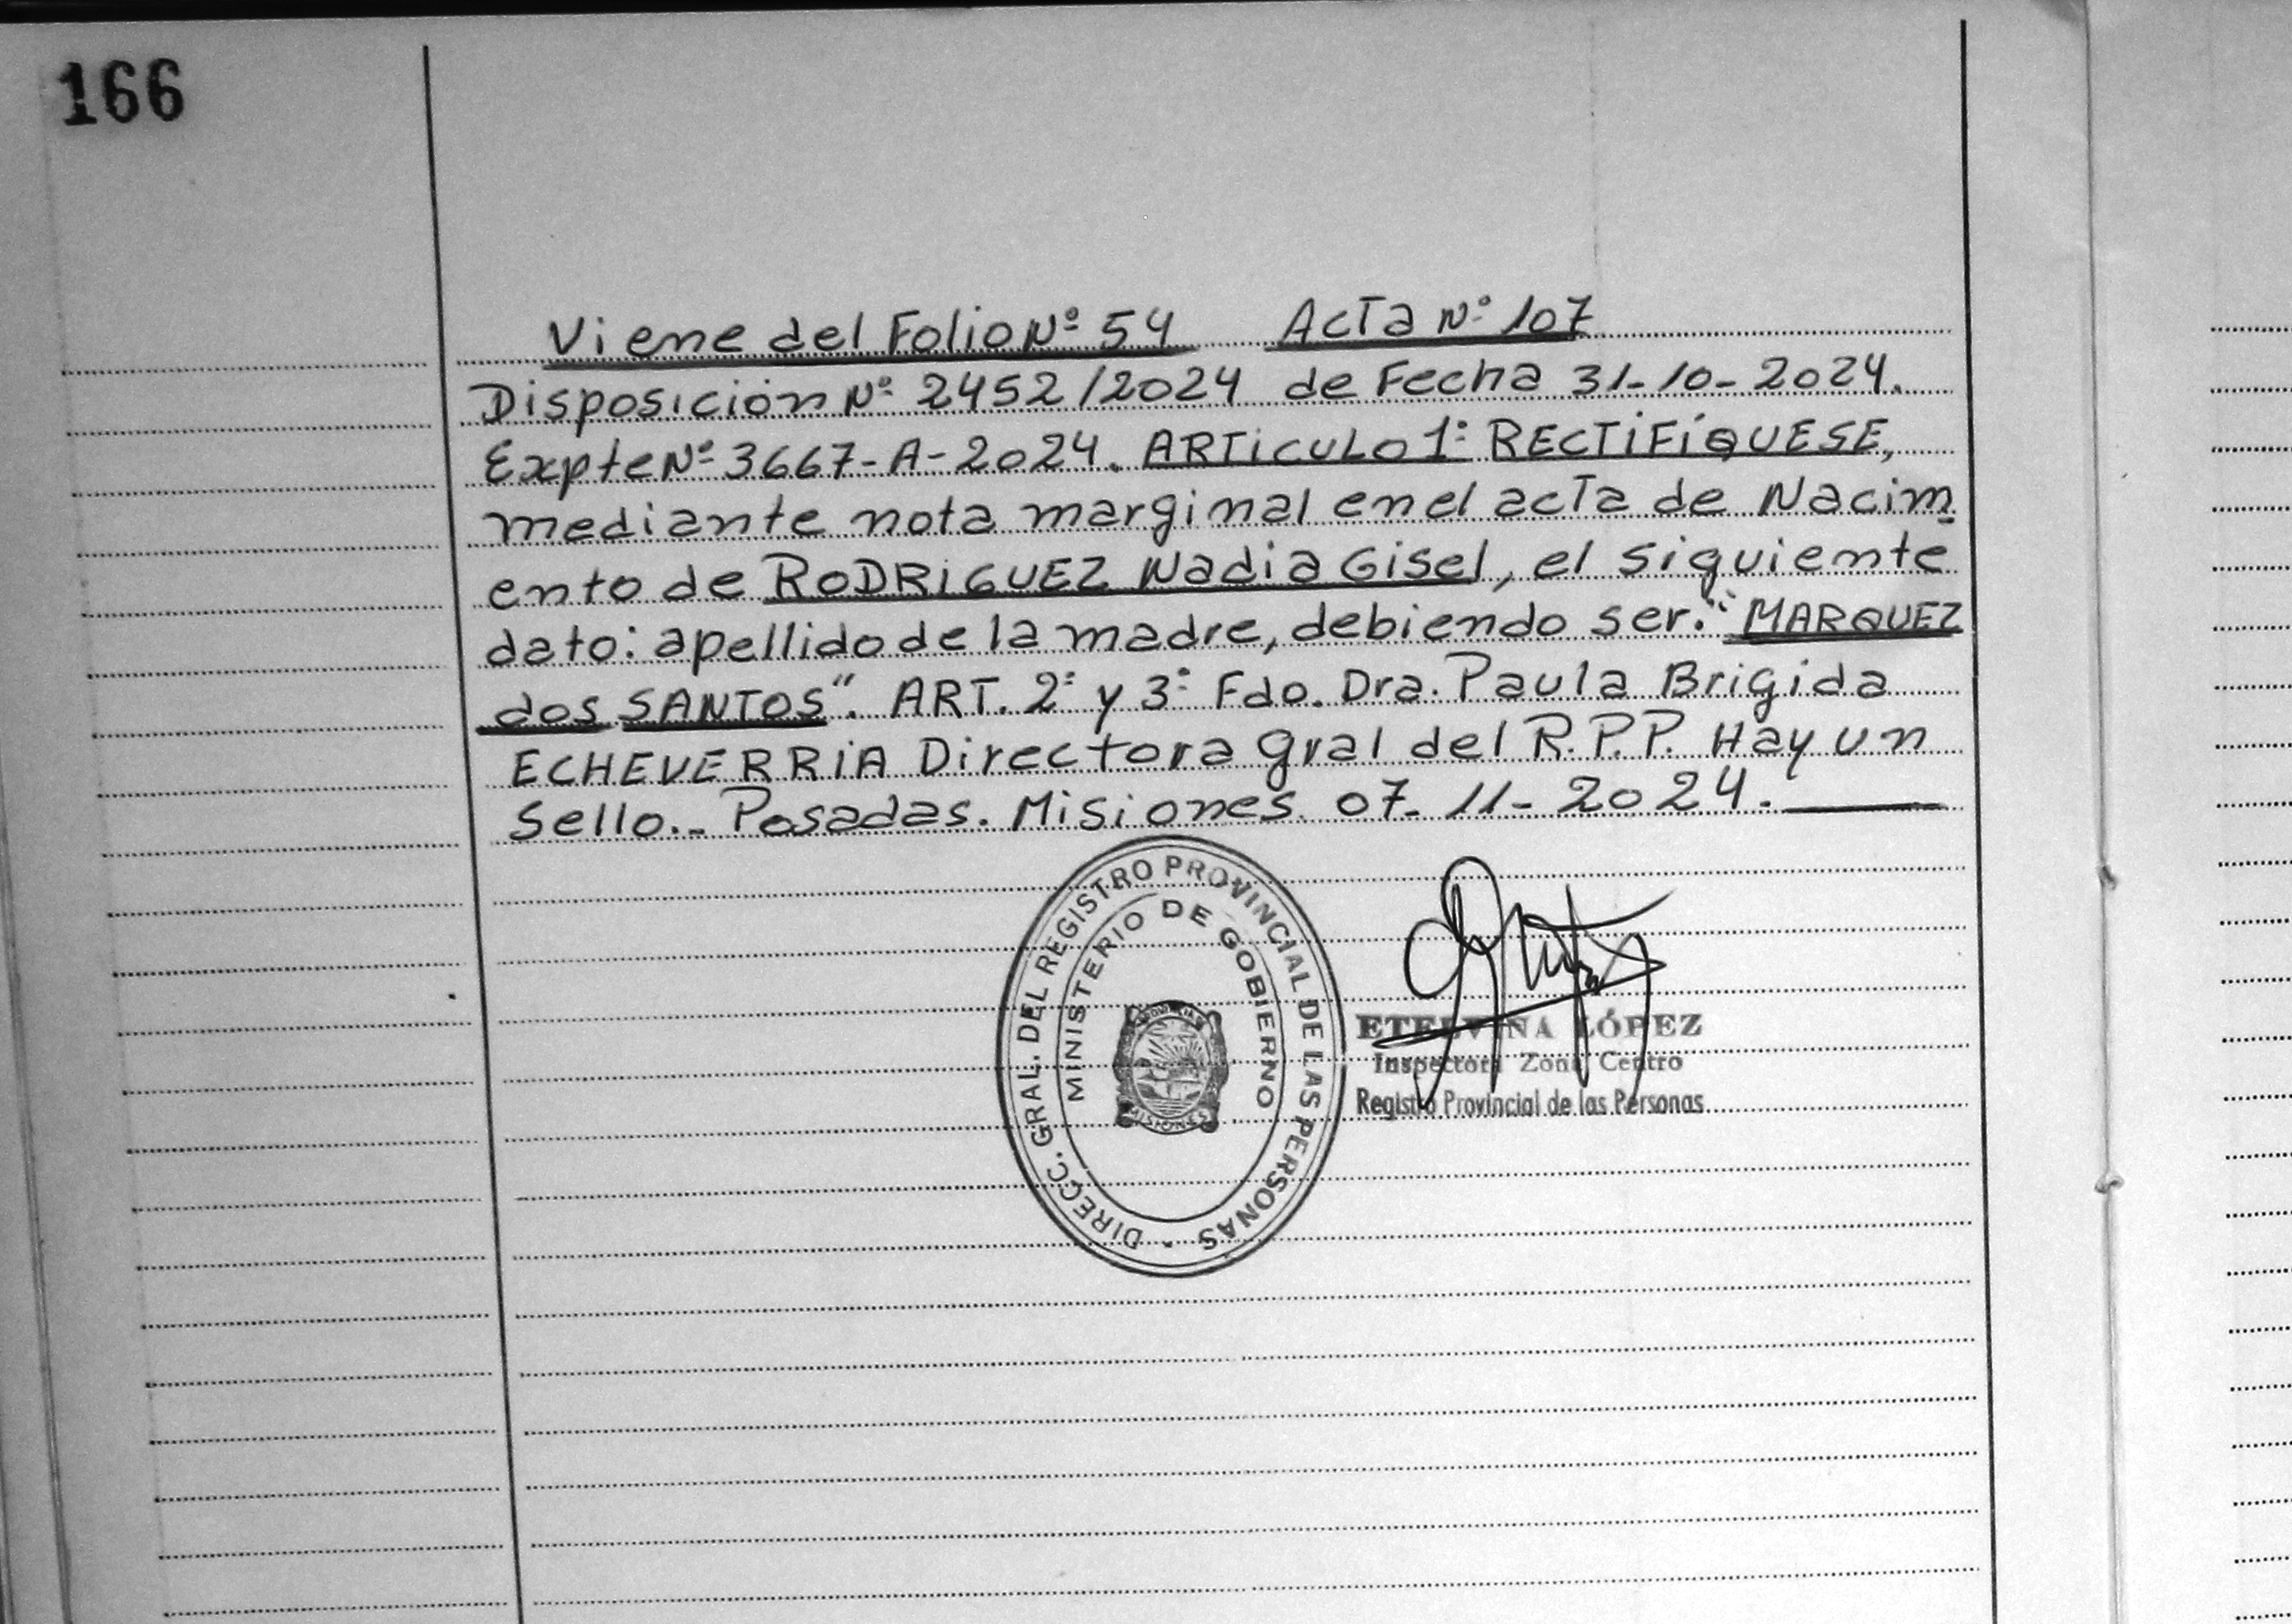 166
Viene del Folio Nº 54 Acta Nº 107
Disposición Nº 2452/2024 de Fecha 31-10-2024.
Expte Nº 3667-A-2024. ARTICULO 1º RECTIFÍQUESE,
mediante nota marginal en el acta de Nacim
ento de RODRIGUEZ Nadia Gisel, el siguiente
dato: apellido de la madre, debiendo ser: "MARQUEZ
dos SANTOS". ART. 2º y 3º Fdo. Dra. Paula Brigida
ECHEVERRIA Directora gral del R.P.P. Hay un
Sello.- Posadas. Misiones. 07-11-2024.
DIRECC. GRAL. DEL REGISTRO PROVINCIAL DE LAS PERSONAS
MINISTERIO DE GOBIERNO
MISIONES
ETELVINA LÓPEZ
Inspectora Zona Centro
Registro Provincial de las Personas